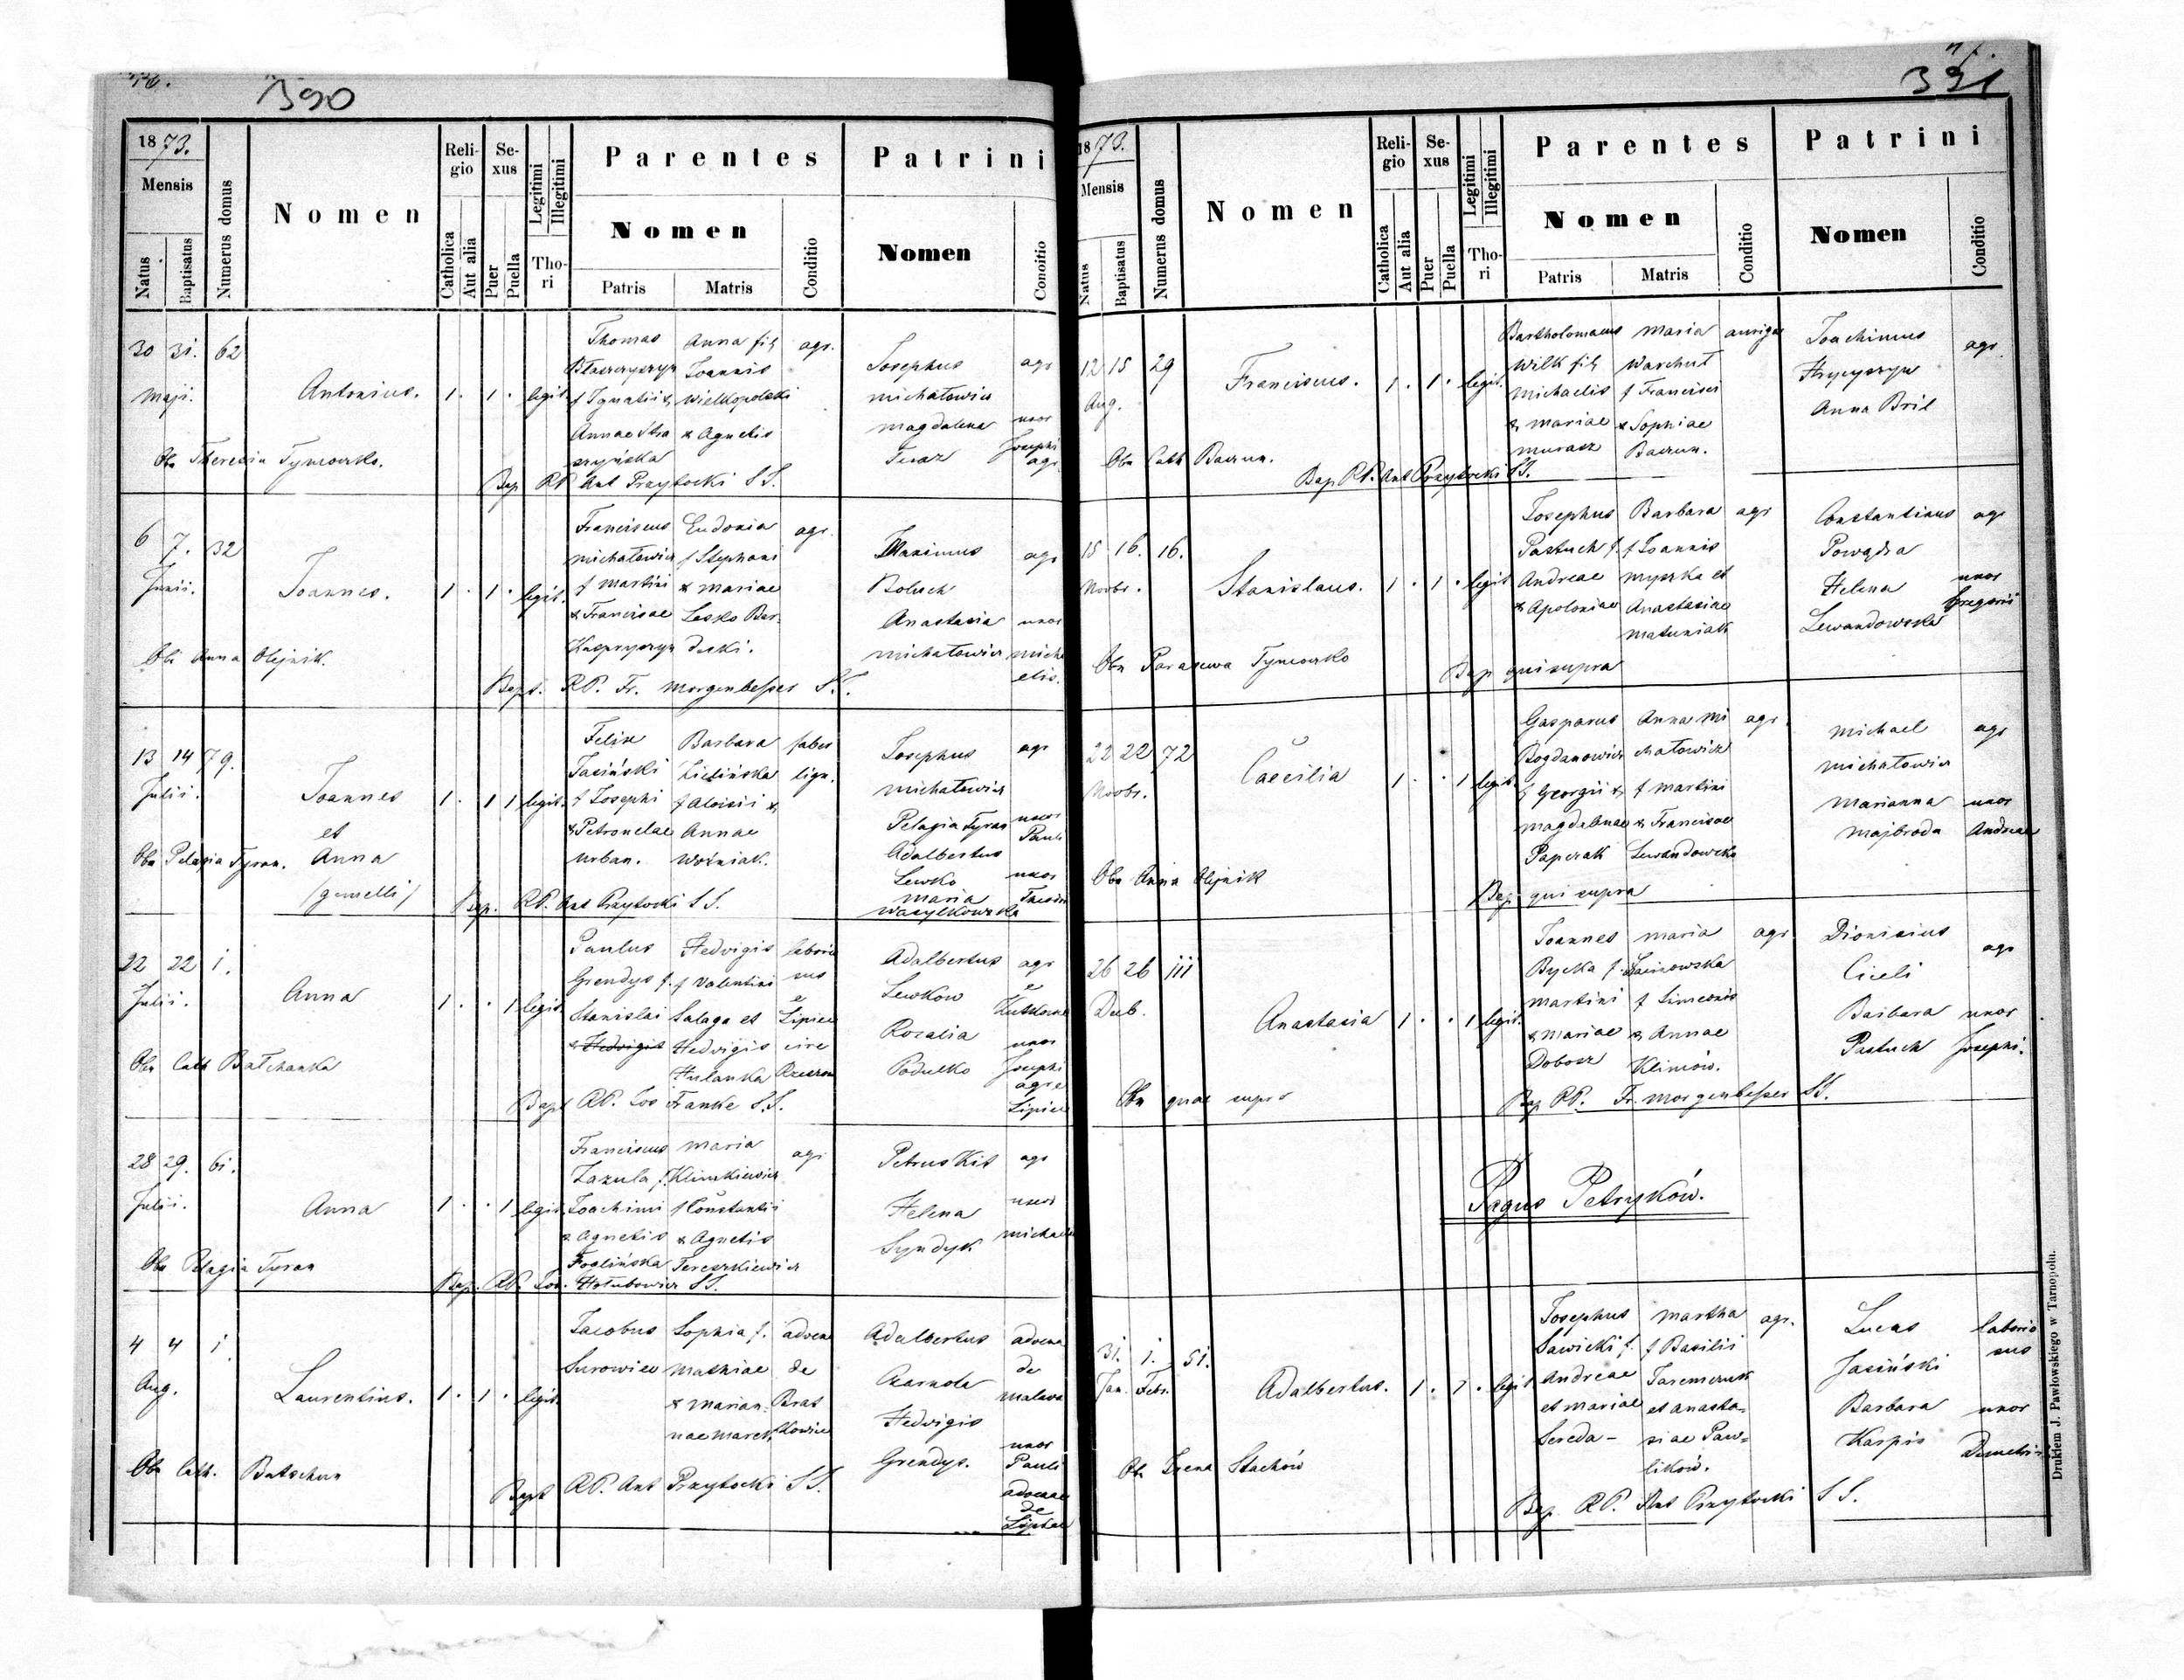 390
18 73.
Mensis
Natus
Baptisatus
Numerus domus
Nomen
Religio
Catholica
Aut alia
Sexus
Puer
Puella
Legitimi
Illegitimi
Thori
Parentes
Nomen
Patris
Matris
Conditio
Patrini
Nomen
Conditio
30 31. 62
Maji.
Antonius.
1. 1. legit.
Thomas
f Ignatii &
Annae
Anna fil
Joannis
Wielkopolski
& Agnetis
agr.
Josephus
Michałowicz
Magdalena
agr
uxor
Josephi
agr
Obs Theresia Tymoczko.
Bap RP Ant Przytocki S J.
6 7. 32
Junii.
Joannes.
1. 1. legit.
Franciscus
Michałowicz
f Martini
& Franciscae
Eudoxia
f Stephani
& Mariae
Lesko
agr.
Maximus
Boluch
Anastasia
Michałowicz
agr
uxor
Micha
elis.
Obs Anna Olejnik.
Bapt. RP. Fr. Morgenbesser S.J.
13 14 79.
Julii.
Joannes
et
Anna
(gemelli)
1. 1 1 legit.
Felix
Jasiński
f Josephi
& Petronelae
Urban.
Barbara
Zielińska
f Aloisii &
Annae
Woźniak.
faber
lign.
Josephus
Michałowicz
Pelagia Tyran
Adalbertus
Lewko
Maria
Wasylkowska
agr
uxor
Pauli
uxor
Obs Pelagia Tyran.
Bap. RP. Ant Przytocki S J.
22 22 1.
Julii.
Anna
1. . 1 legit.
Paulus
Grendys f.
Stanislai
& Hedvigis
Hedvigis
f Valentini
Salaga et
Hedvigis
Hulanka
laborio
sus
e
Lipie
circa
Adalbertus
Lewkow
Rozalia
Podulko
agr
e
uxor
Josephi
agr e
Lipie
Obs Cath Bałchanka
Bapt RP. Jos Franke S.J.
28 29. 61.
Julii.
Anna
1. . 1 legit.
Franciscus
Zazula f.
Joachimi
& Agnetis
Foglińska
Maria
Klimkiewicz
f Constantii
& Agnetis
Tereszkiewicz
agr
Petrus Kit
Helena
Syndyk
agr
uxor
Michaelis
Obs Pelagia Tyran
Bap. RP. Jos. Hołubowicz S J.
4 4 1.
Aug.
Laurentius.
1. 1. legit.
Jacobus
Surowiec
Sophia f.
Mathiae
& Marian
nae Marek
advena
de
Brat
kowice
Adalbertus
Czarnota
Hedvigis
Grendys.
advena
de
Malawa
uxor
Pauli
advenae
de
Obs Cath. Batschun
Bapt RP. Ant Przytocki S J.
391
18 73.
Mensis
Natus
Baptisatus
Numerus domus
Nomen
Religio
Catholica
Aut alia
Sexus
Puer
Puella
Legitimi
Illegitimi
Thori
Parentes
Nomen
Patris
Matris
Conditio
Patrini
Nomen
Conditio
12 15 29
Aug.
Franciscus.
1. 1. legit.
Bartholomaeus
Wilk fil
Michaelis
& Mariae
Murasz
Maria
Warchut
f Francisci
& Sophiae
Baczun.
auriga
Joachimus
Hryczyszyn
Anna Bril
agr.
Obs Cath Baczun.
Bap RP. Ant Przytocki SJ.
15 16. 16.
Novbr.
Stanislaus.
1. 1. legit
Josephus
Pastuch f.
Andreae
& Apoloniae
Barbara
f Joannis
Myszka et
Anastasiae
Matuniak
agr
Constantinus
Powązka
Helena
Lewandowska
agr
uxor
Gregorii
Obs Parasewa Tymoczko
Bap qui supra
22 22 72
Novbr.
Caecilia
1. . 1 legit.
Gasparus
Bogdanowicz
f Georgii &
Magdalenae
Paperak
Anna Mi
chałowicz
f Martini
& Franciscae
Lewandowska
agr.
Michael
Michałowicz
Marianna
Majbroda
agr
uxor
Andreae
Obs Anna Olejnik
Bap qui supra
26 26 111
Deb.
Anastasia
1. . 1 legit.
Joannes
Bycka f.
Martini
& Mariae
Dobosz
Maria
f Simeonis
& Annae
Klimów.
agr
Dionisius
Cieli
Barbara
Pastuch
agr
uxor
Josephi.
Obs quae supra
Bap RP. Fr. Morgenbesser SJ.
Pagus Petryków.
31. 1. 51.
Jan. Febr.
Adalbertus.
1. 1. legit
Josephus
Sawicki f.
Andreae
et Mariae
Sereda -
Martha
f Basilii
Jaremczuk
et Anasta=
siae Paw=
lików.
agr.
Lucas
Jasiński
Barbara
Karpis
laborio
sus
uxor
Demetrii
Obs Irena Stachów
Bap. RP. Ant Przytocki S J.
Drukiem J. Pawłowskiego w Tarnopolu.